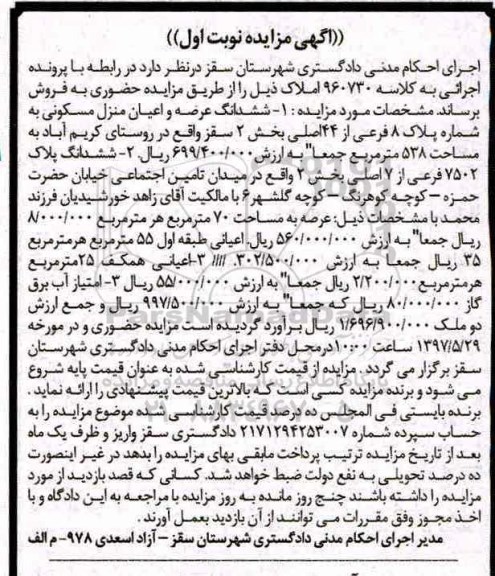 ((آگهی مزایده نوبت اول))
اجرای احکام مدنی دادگستری شهرستان سقز درنظر دارد در رابطه با پرونده
اجرائی به کلاسه ۹۶۰۷۳۰ املاک ذیل را از طریق مزایده حضوری به فروش
برساند. مشخصات مورد مزایده : ۱- ششدانگ عرصه و اعیان منزل مسکونی به
شماره پلاک ۸ فرعی از ۴۴اصلی بخش ۲ سقز واقع در روستای کریم آباد به
مساحت ۵۳۸ مترمربع جمعا" به ارزش ۶۹۹/۴۰۰/۰۰۰ ریال. ۲- ششدانگ پلاک
۷۵۰۲ فرعی از ۷ اصلی بخش ۲ واقع در میدان تامین اجتماعی خیابان حضرت
حمزه – کوچه کوهرنگ – کوچه گلشهر۶ با مالکیت آقای زاهد خورشیدیان فرزند
محمد با مشخصات ذیل: عرصه به مساحت ۷۰ مترمربع هر مترمربع ۸/۰۰۰/۰۰۰
ریال جمعا" به ارزش ۵۶۰/۰۰۰/۰۰۰ ریال. اعیانی طبقه اول ۵۵ مترمربع هرمترمربع
۳۵ ریال جمعا" به ارزش ۳۰۲/۵۰۰/۰۰۰. //// ۳-اعیانی همکف ۲۵مترمربع
هرمترمربع ۲/۲۰۰/۰۰۰ ریال جمعا" به ارزش ۵۵/۰۰۰/۰۰۰ ریال ۳- امتیاز آب برق
گاز ۸۰/۰۰۰/۰۰۰ ریال که جمعا" به ارزش ۹۹۷/۵۰۰/۰۰۰ ریال و جمع ارزش
دو ملک ۱/۶۹۶/۹۰۰/۰۰۰ ریال برآورد گردیده است مزایده حضوری و در مورخه
۱۳۹۷/۵/۲۹ ساعت ۱۰:۰۰ درمحل دفتر اجرای احکام مدنی دادگستری شهرستان
سقز برگزار می گردد . مزایده از قیمت کارشناسی شده به عنوان قیمت پایه شروع
می شود و برنده مزایده کسی است که بالاترین قیمت پیشنهادی را ارائه نماید .
برنده بایستی فی المجلس ده درصد قیمت کارشناسی شده موضوع مزایده را به
حساب سپرده شماره ۲۱۷۱۲۹۴۲۵۳۰۰۷ دادگستری سقز واریز و ظرف یک ماه
بعد از تاریخ مزایده ترتیب پرداخت مابقی بهای مزایده را بدهد در غیر اینصورت
ده درصد تحویلی به نفع دولت ضبط خواهد شد. کسانی که قصد بازدید از مورد
مزایده را داشته باشند چنج روز مانده به روز مزایده با مراجعه به این دادگاه و با
اخذ مجوز وفق مقررات می توانند از آن بازدید بعمل آورند .
مدیر اجرای احکام مدنی دادگستری شهرستان سقز – آزاد اسعدی ۹۷۸- م الف